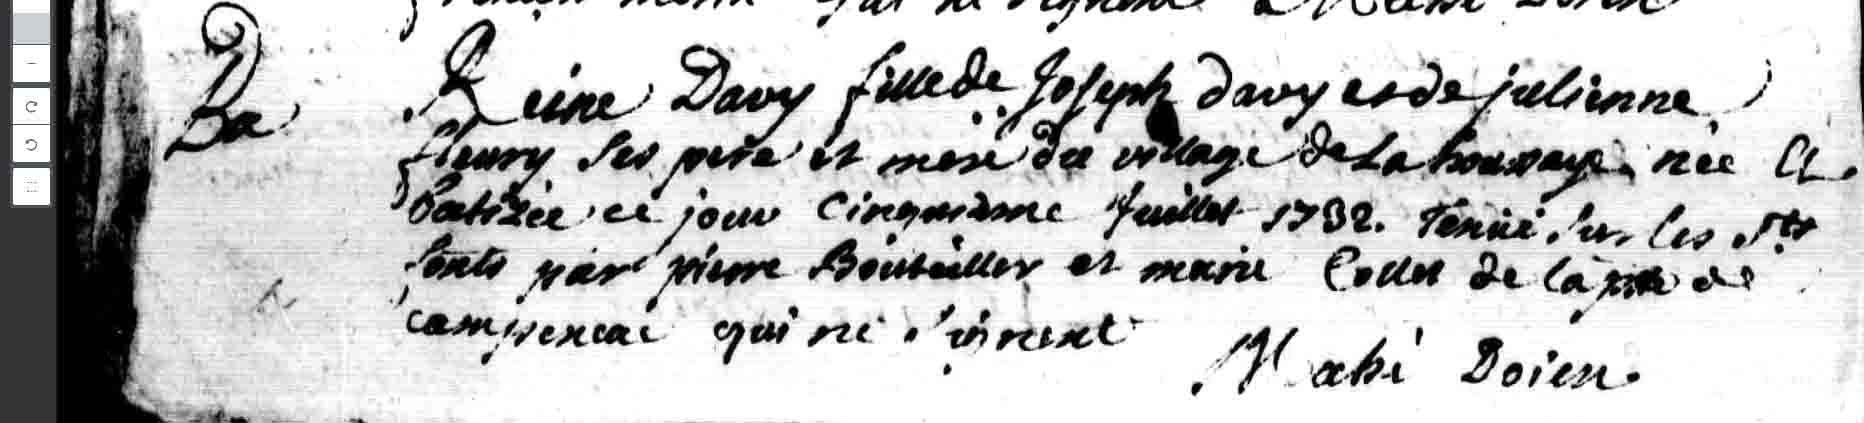 qui ne signent Mahé Doien
Ba Reine Davy fille de Joseph davy et de julienne
fleury ses pere et mere du village de La houssaye née et
batizée ce jour Cinquieme Juillet 1732. tenüe sur les Sts
fonts par pierre Bouteiller et marie Collet de la psse de
campeneac qui ne signent
Mahé Doien